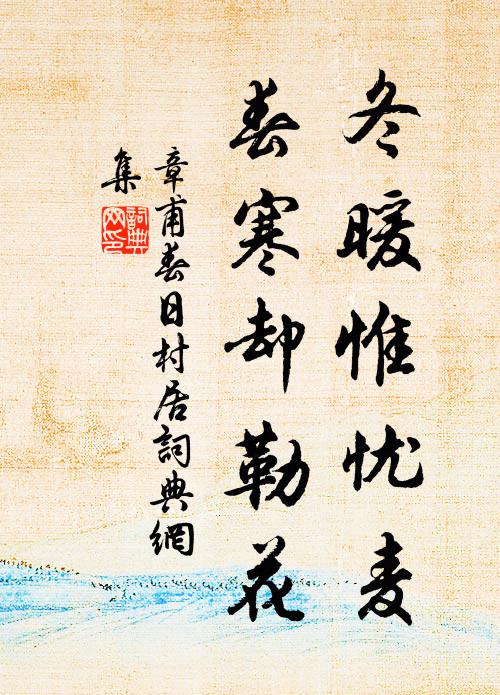 冬暖惟忧麦
春寒却勒花
章甫春日村居詞典網
集
詞典
网印